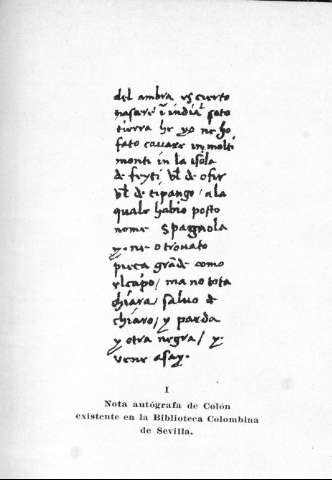 del ambra es cierto
nascere ĩ indiã soto
tierra he yo ne ho
fato cavare in molti
monti in la isola
de feyti vl̃ de ofir
vl̃ de cipango / a la
quale habio posto
nome spagnola
y ne o trovato
pieça grãde como
el capo / ma no tota
chiara salvo de
chiaro / y parda
y otra negra / y
vene asay.
I
Nota autógrafa de Colón
existente en la Biblioteca Colombina
de Sevilla.